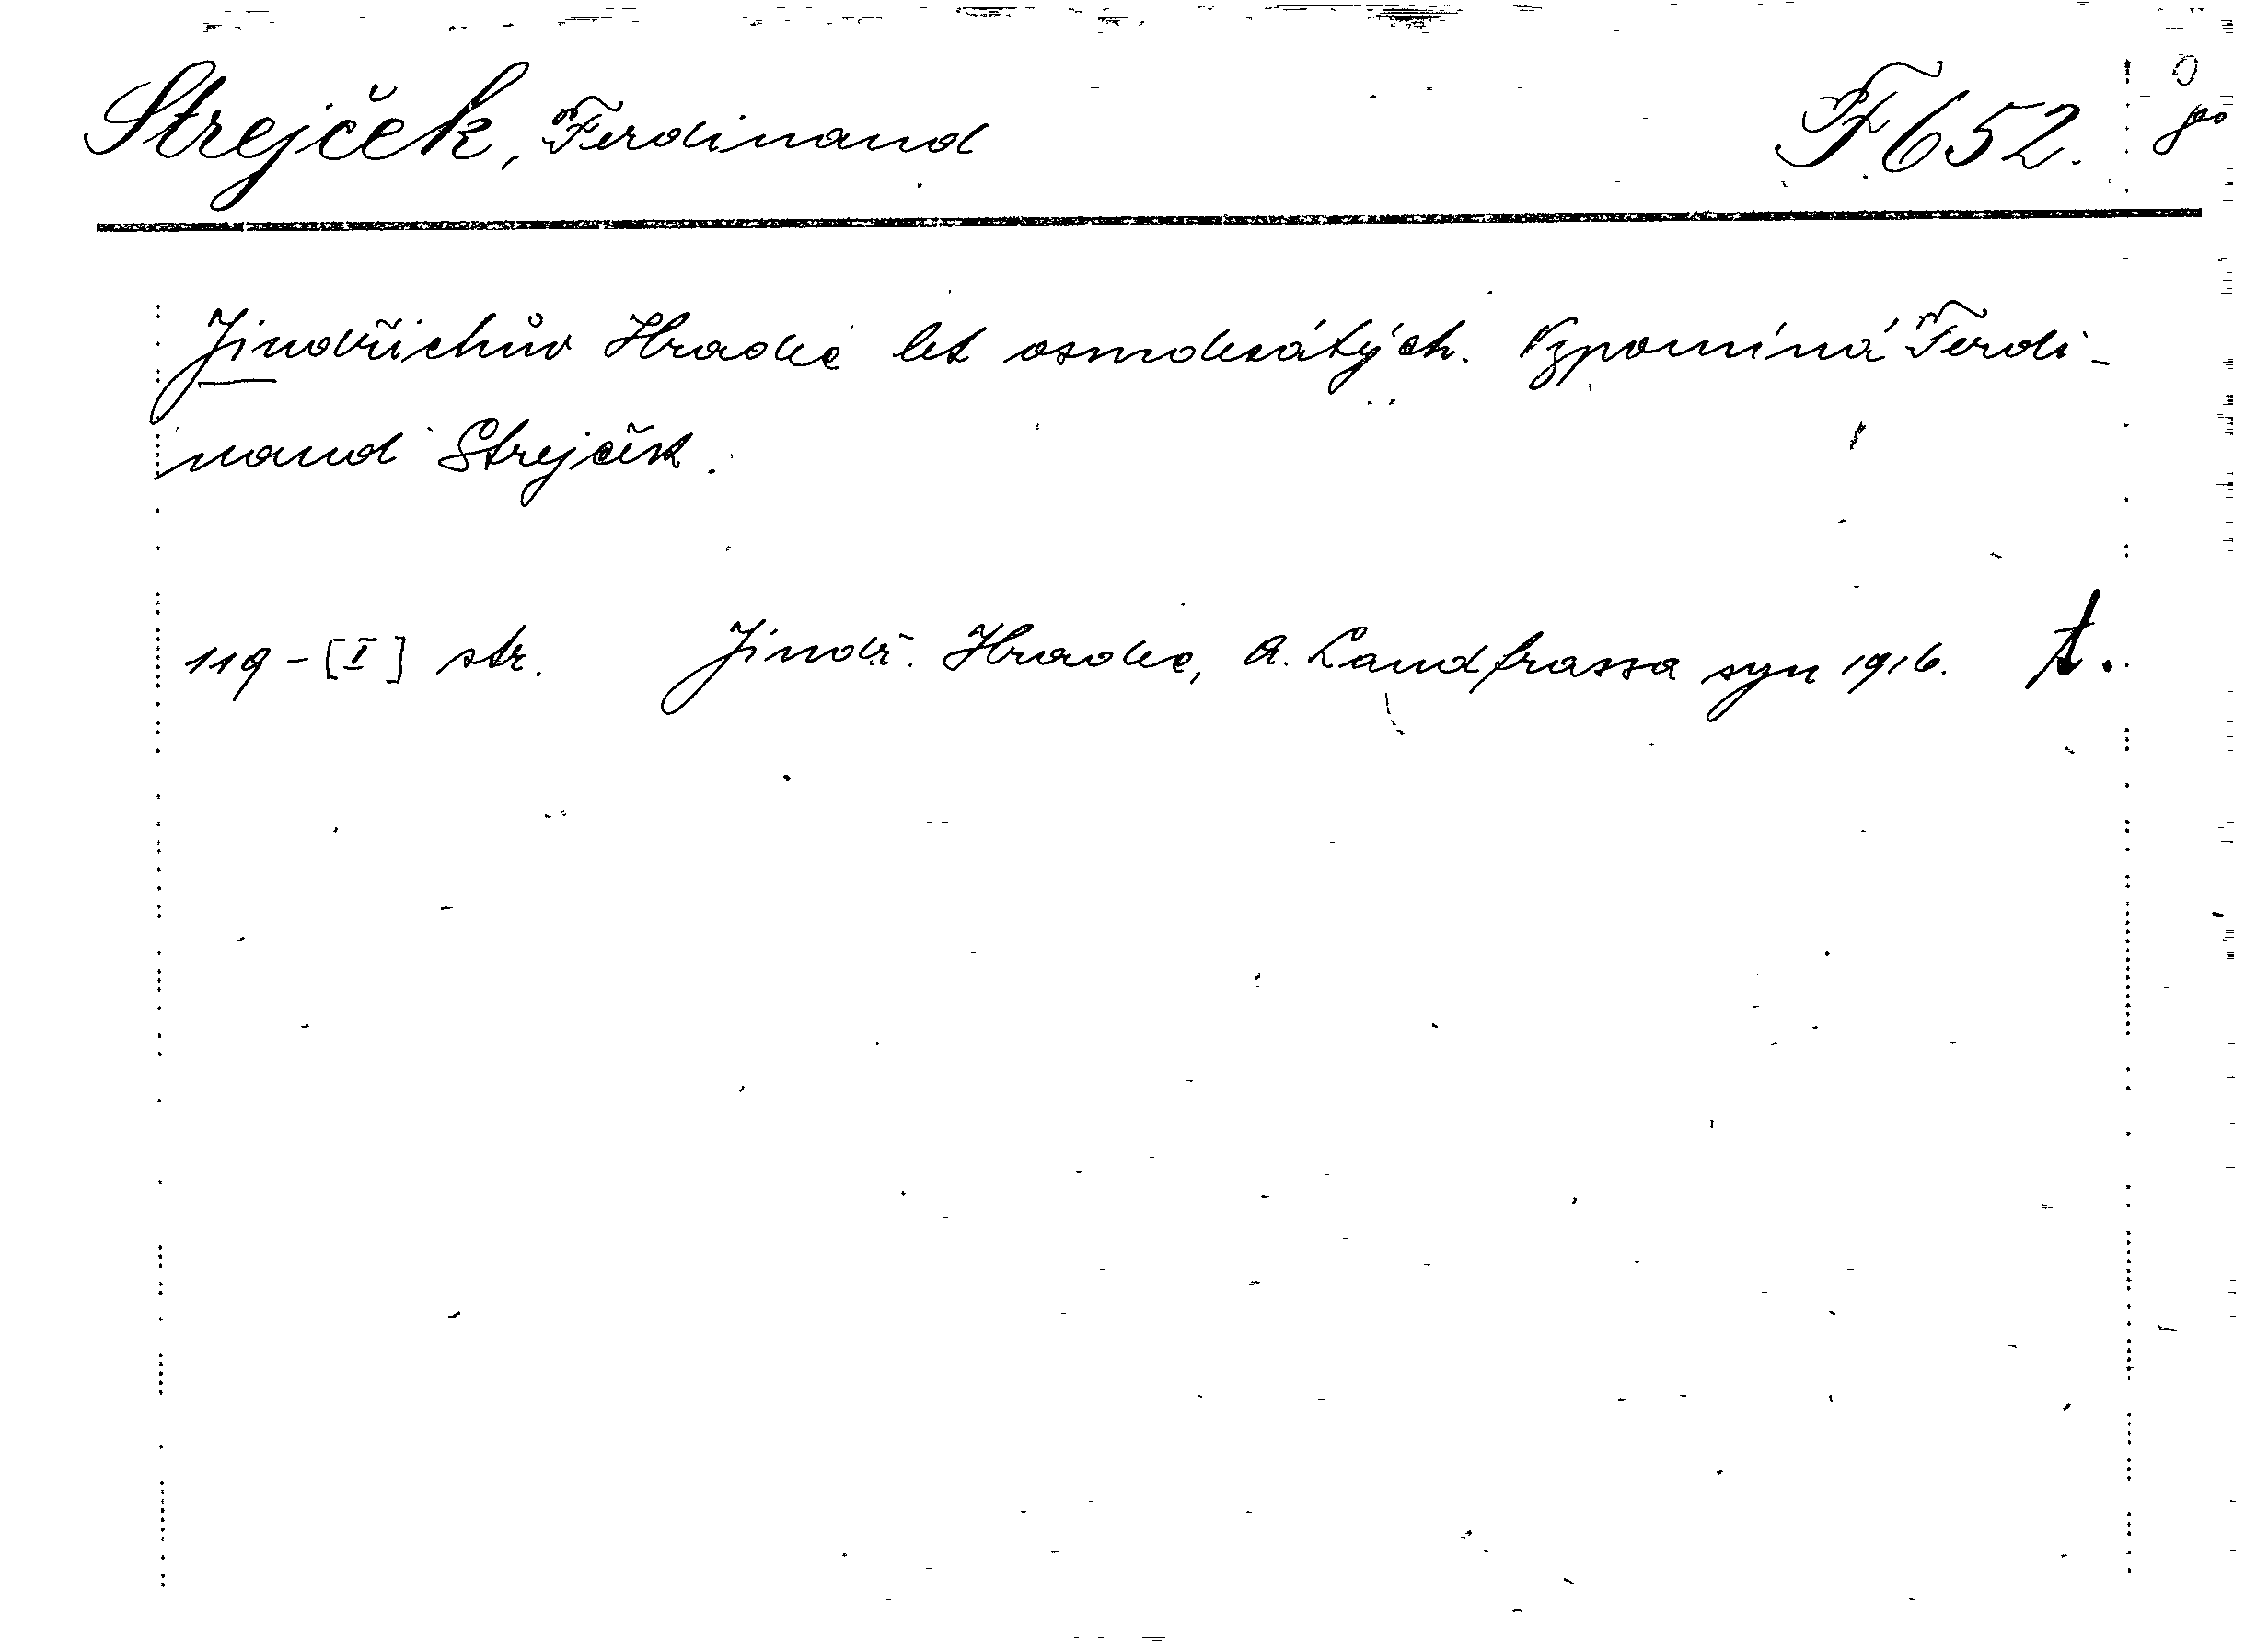 Strejček, Ferdinand F 652.
Jindřichův Hradec let osmdesátých. Vzpomíná Ferdi-
nand Strejček.
119 - [I] str. Jindř. Hradec, A. Landfrassa syn 1916. t.